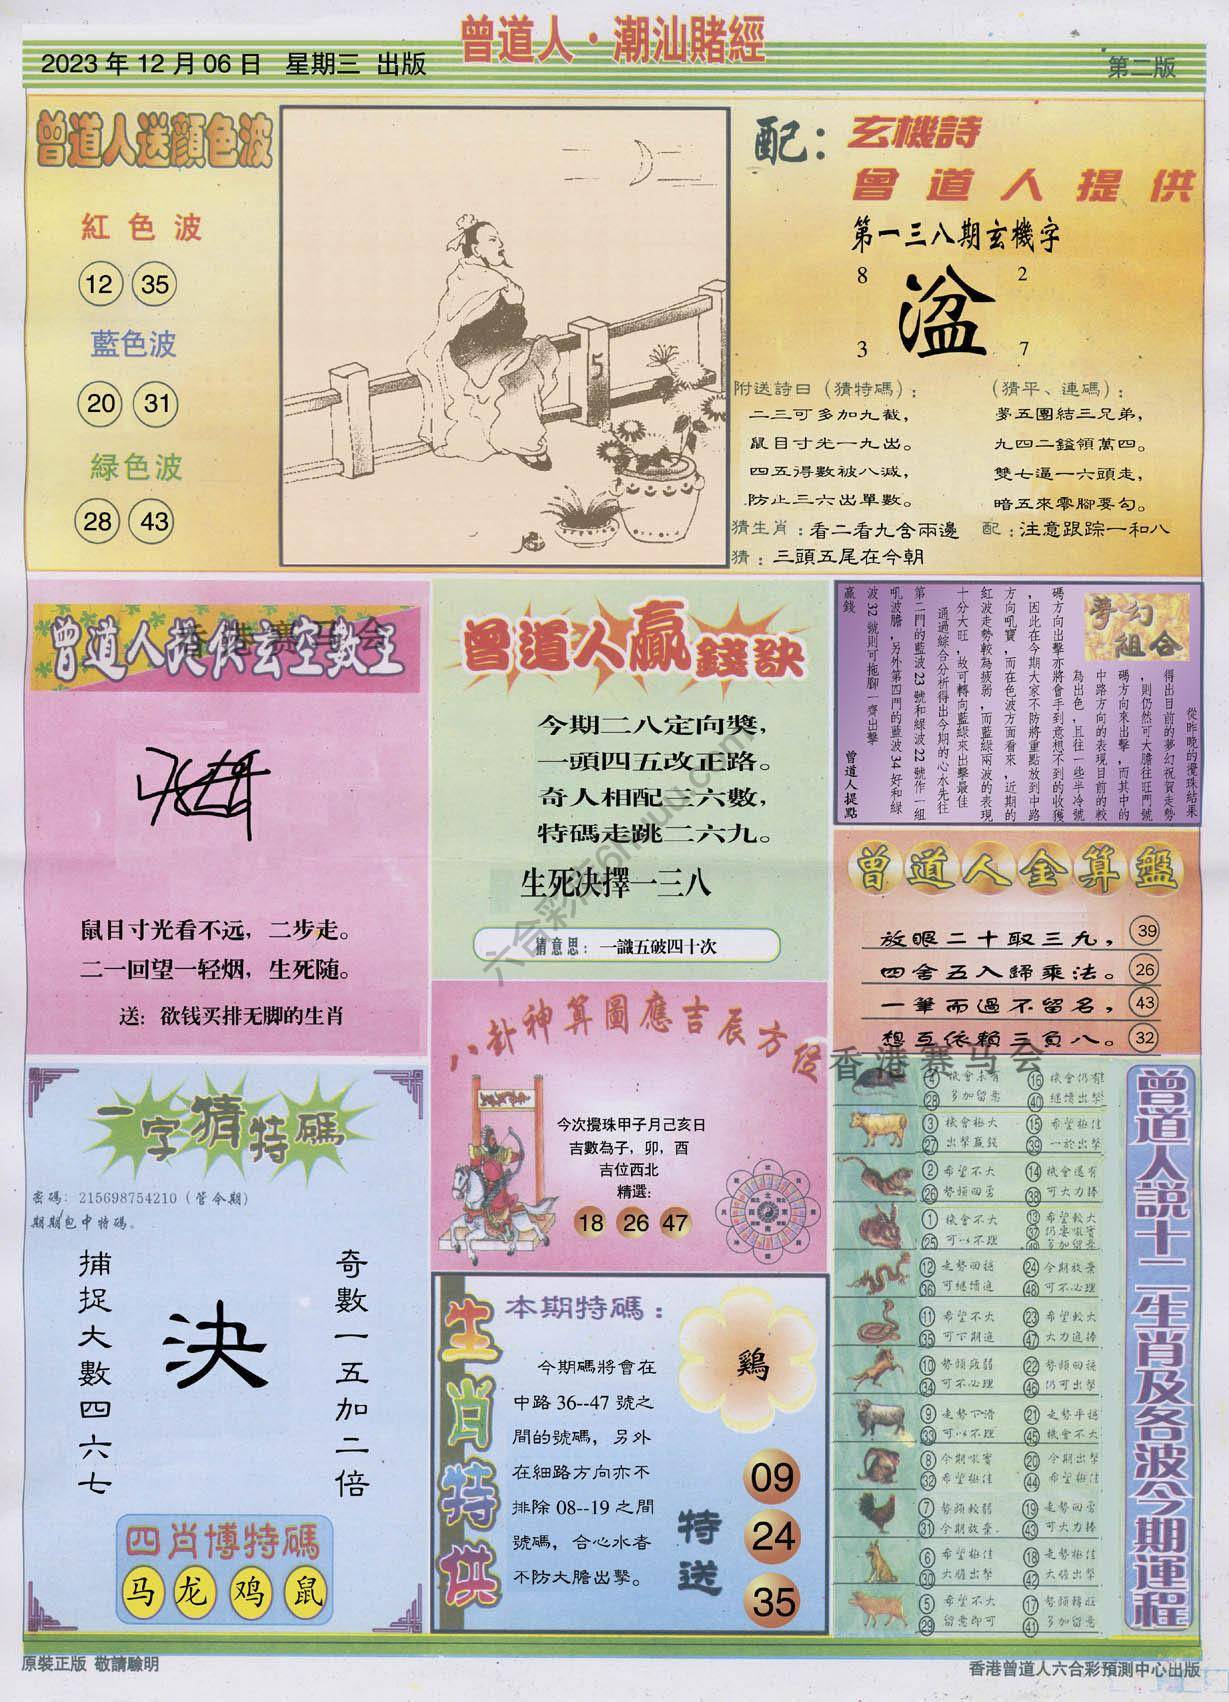 曾道人·潮汕賭經
2023年12月06日 星期三 出版
第二版
曾道人送顏色波
紅色波
12 35
藍色波
20 31
緑色波
28 43
5
配：玄機詩
曾道人提供
第一三八期玄機字
8 2
湓
3 7
附送詩曰（猜特碼）：
二三可多加九截，
鼠目寸光一九出。
四五得數被八減，
防止三六出單數。
（猜平、連碼）：
夢五團結三兄弟，
九四二鎰領萬四。
雙七逼一六頭走，
暗五來零腳要勾。
猜生肖：看二看九含兩邊
配：注意跟踪一和八
猜：三頭五尾在今朝
曾道人提供玄空數王
香港赛马会
鼠目寸光看不远，二步走。
二一回望一轻烟，生死随。
送：欲钱买排无脚的生肖
曾道人贏錢訣
今期二八定向獎，
一頭四五改正路。
奇人相配三六數，
特碼走跳二六九。
生死决擇一三八
猜意思：一識五破四十次
夢幻組合
從昨晚的攪珠結果
得出目前的夢幻祝賀走勢
，則仍然可大膽往旺門號
碼方向來出擊，而其中的
中路方向的表現目前的較
為出色，且往一些半冷號
碼方向出擊亦將會手到意想不到的收獲
，因此在今期大家不防將重點放到中路
方向吼寶，而在色波方面看來，近期的
紅波走勢較為疲弱，而藍綠兩波的表現
十分大旺，故可轉向藍綠來出擊最佳
通過綜合分析得出今期的心水先往
第二門的藍波23號和綠波22號作一組
吼波膽，另外第四門的藍波34好和綠
波32號則可拖腳一齊出擊
贏錢
曾道人提點
曾道人金算盤
放眼二十取三九，39
四舍五入歸乘法。26
一筆而過不留名，43
想互依賴三負八。32
香港赛马会
八卦神算圖應吉辰方位
今次攪珠甲子月己亥日
吉數為子，卯，酉
吉位西北
精選：
18 26 47
一字猜特碼
密碼：215698754210（管今期）
期期包中特碼。
捕捉大數四六七
決
奇數一五加二倍
四肖博特碼
马 龙 鸡 鼠
生肖特供
本期特碼：
鷄
今期碼將會在
中路36--47號之
間的號碼，另外
在細路方向亦不
排除08--19之間
號碼，合心水者
不防大膽出擊。
特送
09
24
35
曾道人說十二生肖及各波今期運程
4 28 機會未有 多加留意
16 40 機會仍有 繼續出擊
3 27 機會極大 出擊贏錢
15 39 希望極佳 一於出擊
2 26 希望不大 勢頭回勇
14 38 機會還有 可大力捧
1 25 機會不大 可以不理
13 37 49 希望較大 仍要吼實 多加留意
12 36 走勢回穩 可繼續追
24 48 今期放棄 可不必理
11 35 希望不大 可下期追
23 47 希望較大 大力追捧
10 34 勢頭疲弱 可不必理
22 46 勢頭回穩 仍可出擊
9 33 走勢下滑 可以不理
21 45 走勢平穩 機會不大
8 32 今期吼實 希望極佳
20 44 今期出擊 希望極佳
7 31 勢頭較弱 今期放棄.
19 43 走勢回勇 可大力捧
6 30 希望極佳 大膽出擊
18 42 走勢極佳 大膽出擊
5 29 希望不大 留意即可
17 41 勢頭轉旺 多加留意
原裝正版 敬請驗明
香港曾道人六合彩預測中心出版